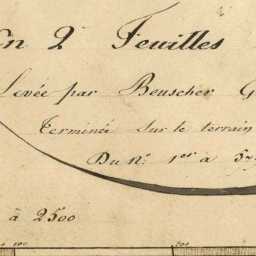 En 2 Feuilles
Levée par Beuscher G
Terminée sur le terrain
Du N.° 1.er à 5
à 2500
100